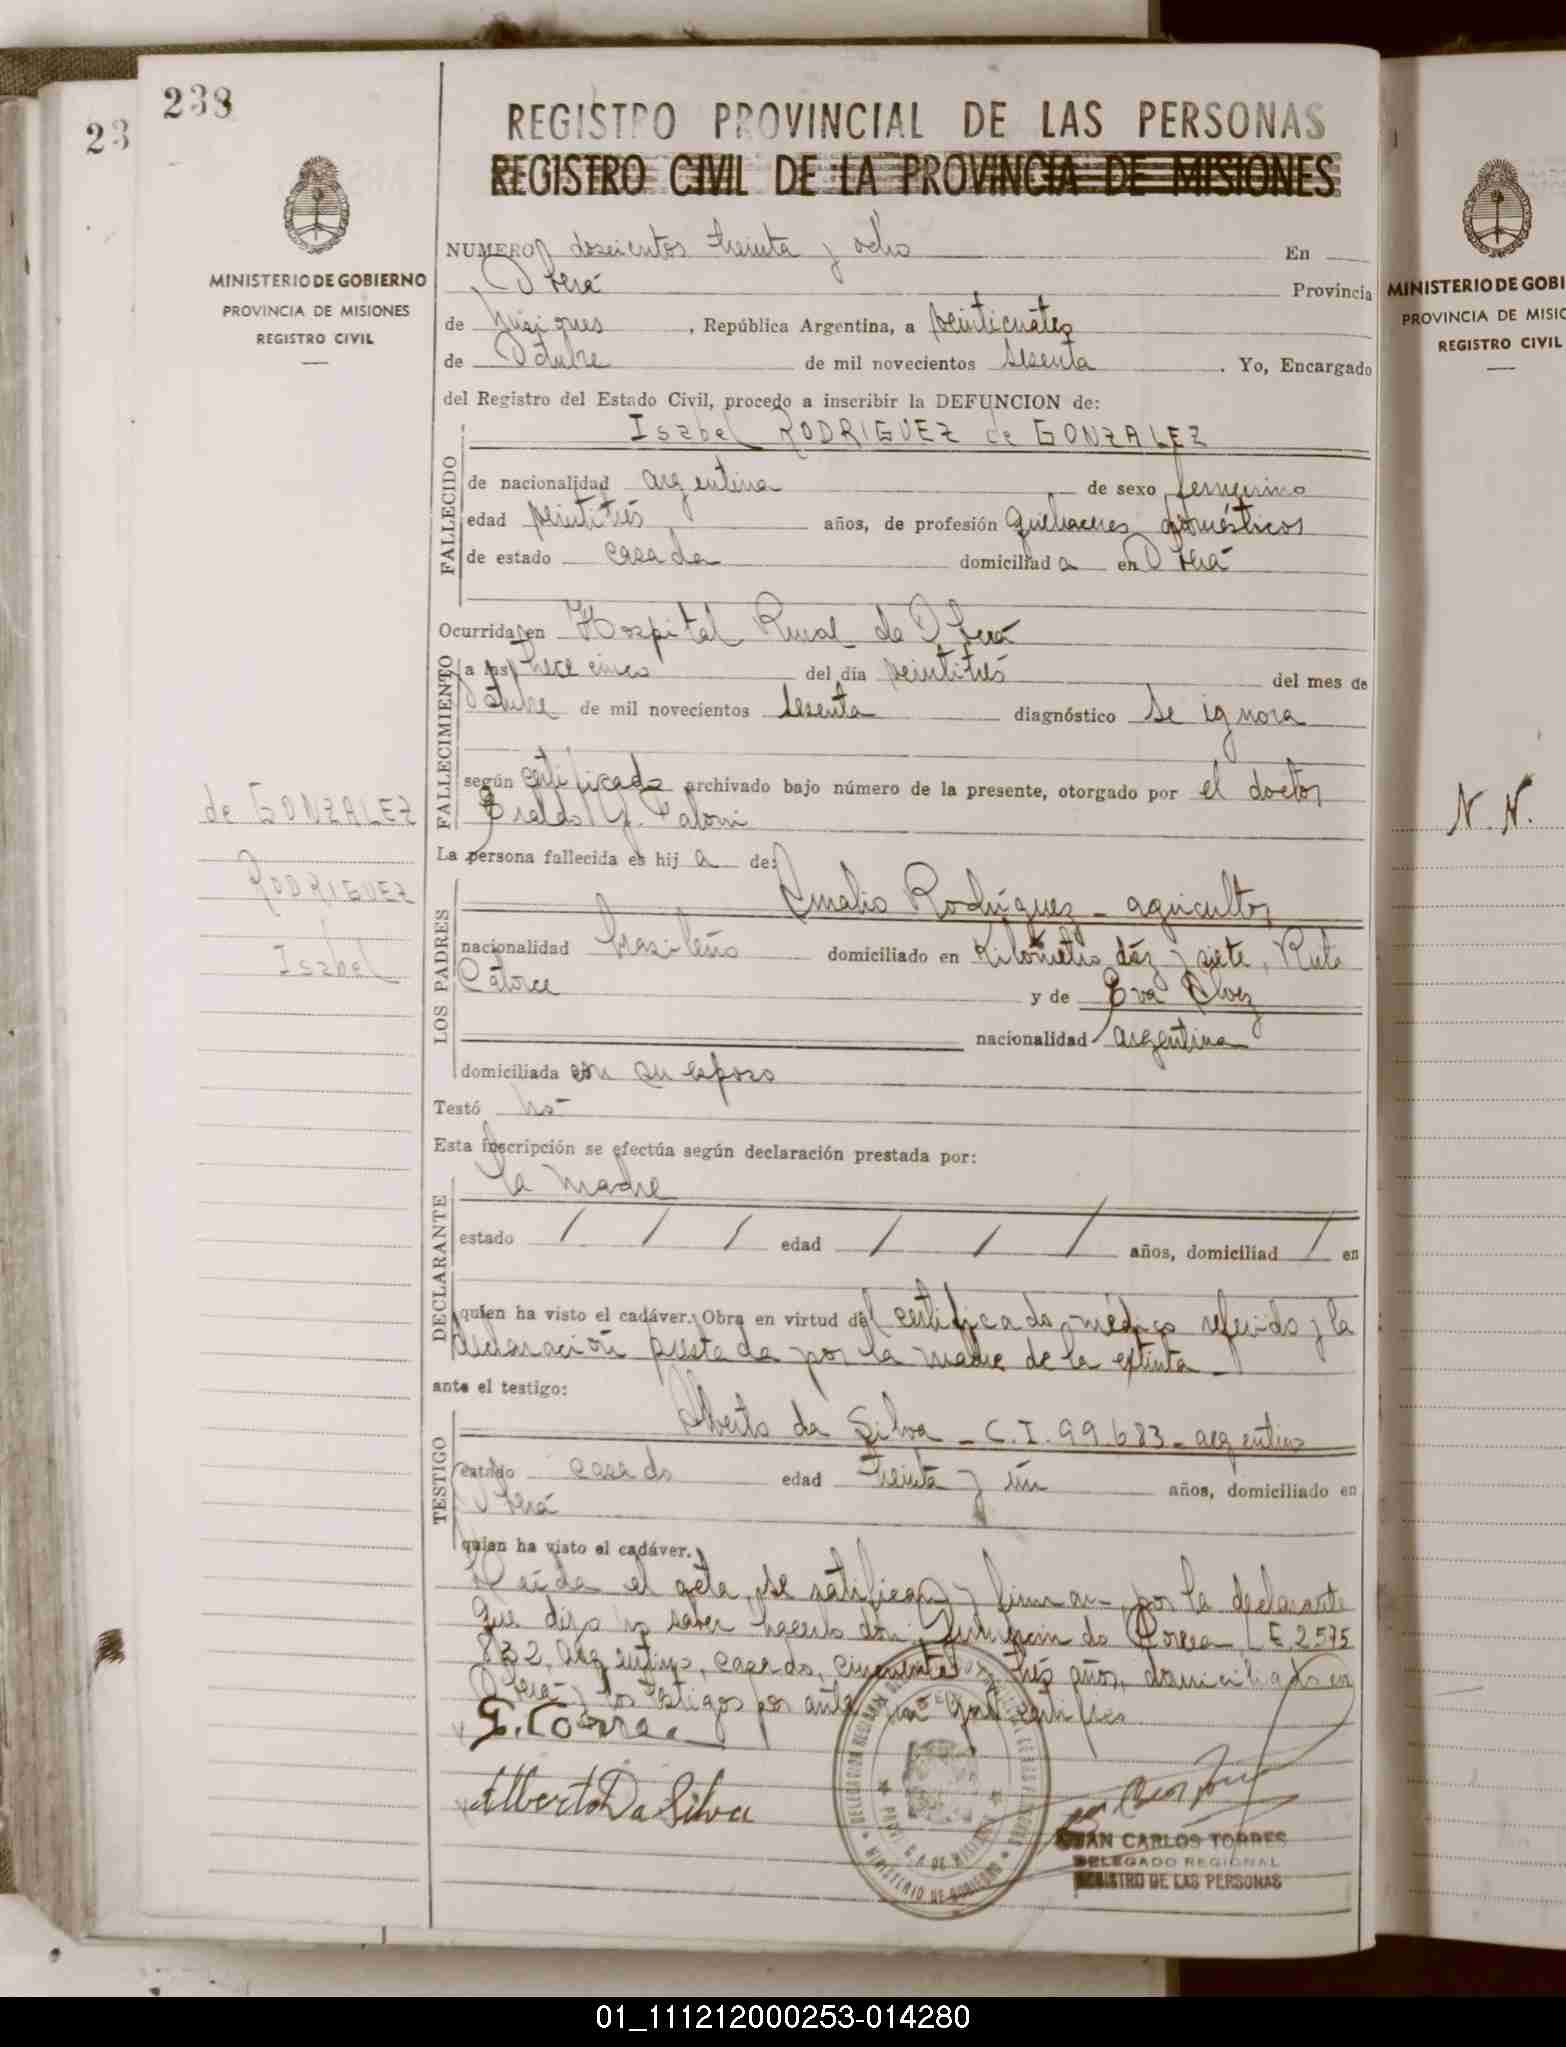 238
23
REGISTRO PROVINCIAL DE LAS PERSONAS
REGISTRO CIVIL DE LA PROVINCIA DE MISIONES
MINISTERIO DE GOBIERNO
PROVINCIA DE MISIONES
REGISTRO CIVIL
NUMERO doscientos treinta y ocho En
Oberá Provincia
de Misiones , República Argentina, a veinticuatro
de Octubre de mil novecientos sesenta . Yo, Encargado
del Registro del Estado Civil, procedo a inscribir la DEFUNCION de:
Isabel RODRIGUEZ de GONZALEZ
FALLECIDO
de nacionalidad argentina de sexo femenino
edad veintitrés años, de profesión quehaceres domésticos
de estado casada domiciliad a en Oberá
Ocurrida en Hospital Rural de Oberá
FALLECIMIENTO
a las trece cinco del día veintitrés del mes de
Octubre de mil novecientos sesenta diagnóstico se ignora
según certificado archivado bajo número de la presente, otorgado por el doctor
Eraldo Y. Paloni
de GONZALEZ
RODRIGUEZ
Isabel
La persona fallecida es hij a de:
LOS PADRES
Amalio Rodríguez - agricultor
nacionalidad brasileño domiciliado en Kilómetro diez y siete, Ruta
Catorce y de Eva Alvez
nacionalidad argentina
domiciliada con su esposo
Testó no
Esta inscripción se efectúa según declaración prestada por:
DECLARANTE
la madre
estado / / / edad / / / años, domiciliad / en
quien ha visto el cadáver. Obra en virtud del certificado médico referido y la
declaración prestada por la madre de la extinta -
ante el testigo:
TESTIGO
Alberto da Silva - C.I. 99.683 - argentino
estado casado edad treinta y un años, domiciliado en
Oberá
quien ha visto el cadáver.
Leída el acta, se ratifican y firman, por la declarante
que dijo no saber hacerlo don Gumercindo Correa L.E. 2575
832, argentino, casado, cincuenta y tres años, domiciliado en
Oberá y los testigos por ante mí que certifico.
G. Correa
Alberto Da Silva
MINISTERIO DE GOBIERNO
JUAN CARLOS TORRES
DELEGADO REGIONAL
REGISTRO DE LAS PERSONAS
MINISTERIO DE GOBI
PROVINCIA DE MISIO
REGISTRO CIVIL
N. N.
01_111212000253-014280